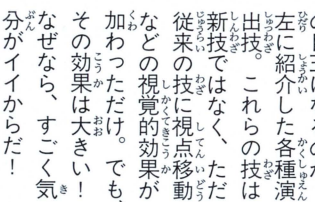 左に紹介した各種演
出技。これらの技は
新技ではなく、ただ
従来の技に視点移動
などの視覚的効果が
加わっただけ。でも、
その効果は大きい！
なぜなら、すごく気
分がイイからだ！